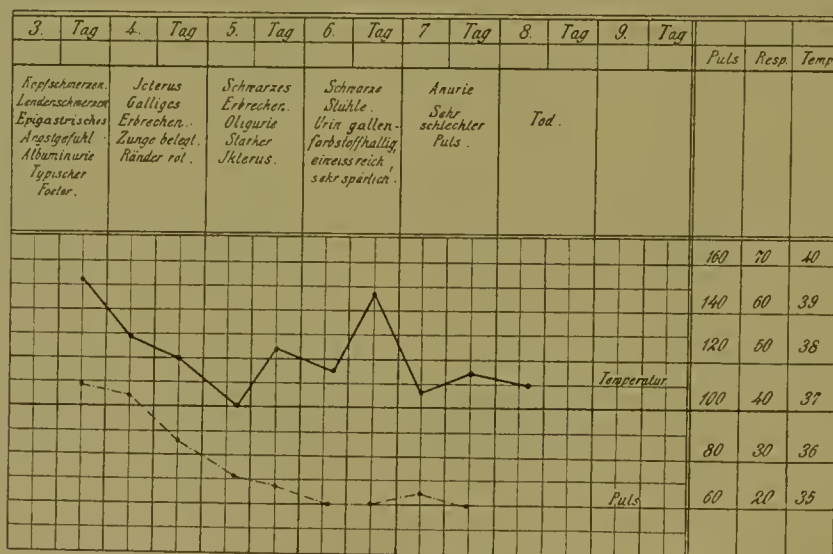 3. Tag 4. Tag 5. Tag 6. Tag 7 Tag 8. Tag 9. Tag
Puls Resp. Temp
Kopfschmerzen.
Lendenschmerzen
Epigastrisches
Angstgefühl.
Albuminurie
Typischer
Foetor.
Jcterus
Galliges
Erbrechen.
Zunge belegt.
Ränder rot.
Schwarzes
Erbrechen.
Oligurie
Starker
Jkterus.
Schwarze
Stühle.
Urin gallen-
farbstoffhaltig,
eiweissreich,
sehr spärlich.
Anurie
Sehr
schlechter
Puls.
Tod.
160 70 40
140 60 39
120 50 38
Temperatur
100 40 37
80 30 36
Puls
60 20 35